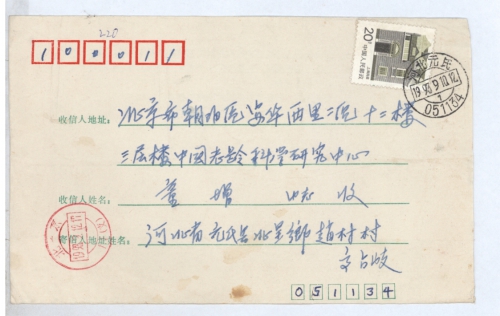 220
100011
20
中国人民邮政
河北元氏
1993.9.10.12
1
051134
收信人地址:
北京市朝阳区安华西里二区十二楼
三层楼中国老龄科学研究中心
收信人姓名:
董 增 收
寄信人地址姓名:
河北省元氏县北呈鄉趙村村
051134